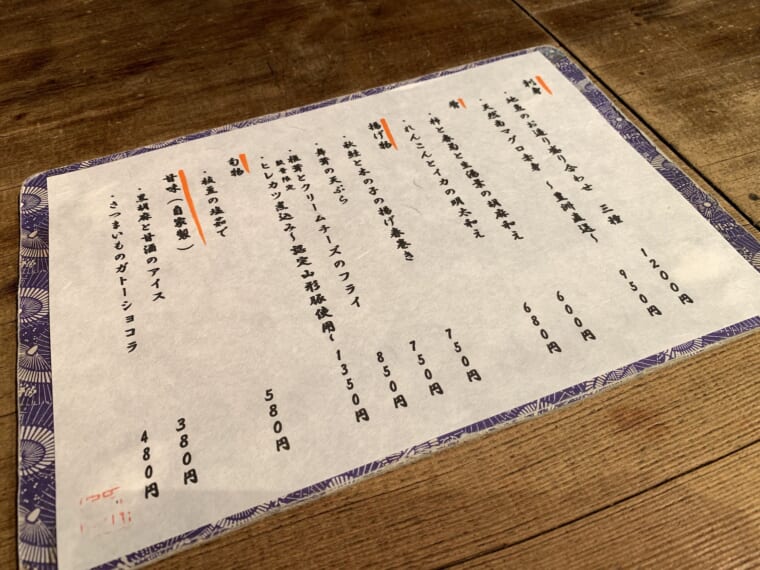 刺身
・地魚のお造り盛り合わせ　三種　1200円
・天然南マグロ赤身　～豊洲直送～　950円
肴
・柿と春菊と生湯葉の胡麻和え　600円
・れんこんとイカの明太和え　680円
揚げ物
・秋鮭と木の子の揚げ春巻き　750円
・舞茸の天ぷら　750円
・椎茸とクリームチーズのフライ　850円
数量限定
・ヒレカツ煮込み～認定山形豚使用～　1350円
旬物
・枝豆の塩茹で　580円
甘味（自家製）
・黒胡麻と甘酒のアイス　380円
・さつまいものガトーショコラ　480円